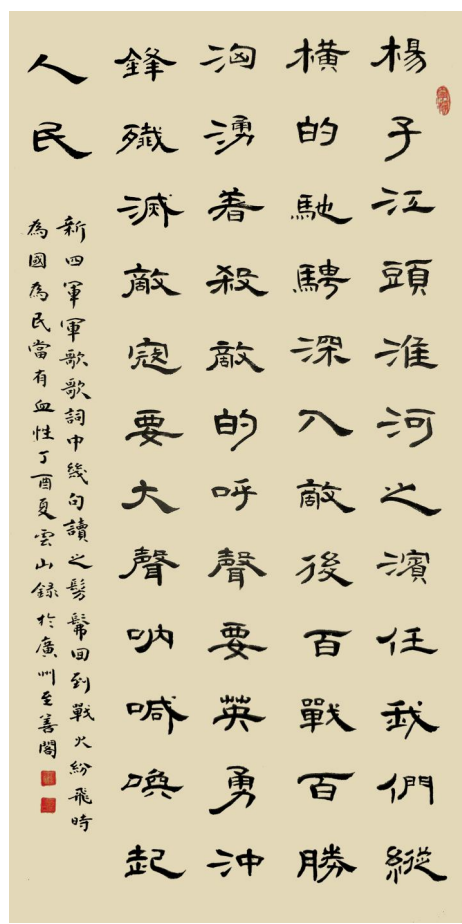 楊子江頭淮河之濱任我們縱
橫的馳騁深入敵後百戰百勝
洶湧着殺敵的呼聲要英勇沖
鋒殲滅敵寇要大聲吶喊喚起
人民
新四軍軍歌歌詞中幾句讀之髣髴回到戰火紛飛時
為國為民當有血性丁酉夏雲山録於廣州至善閣